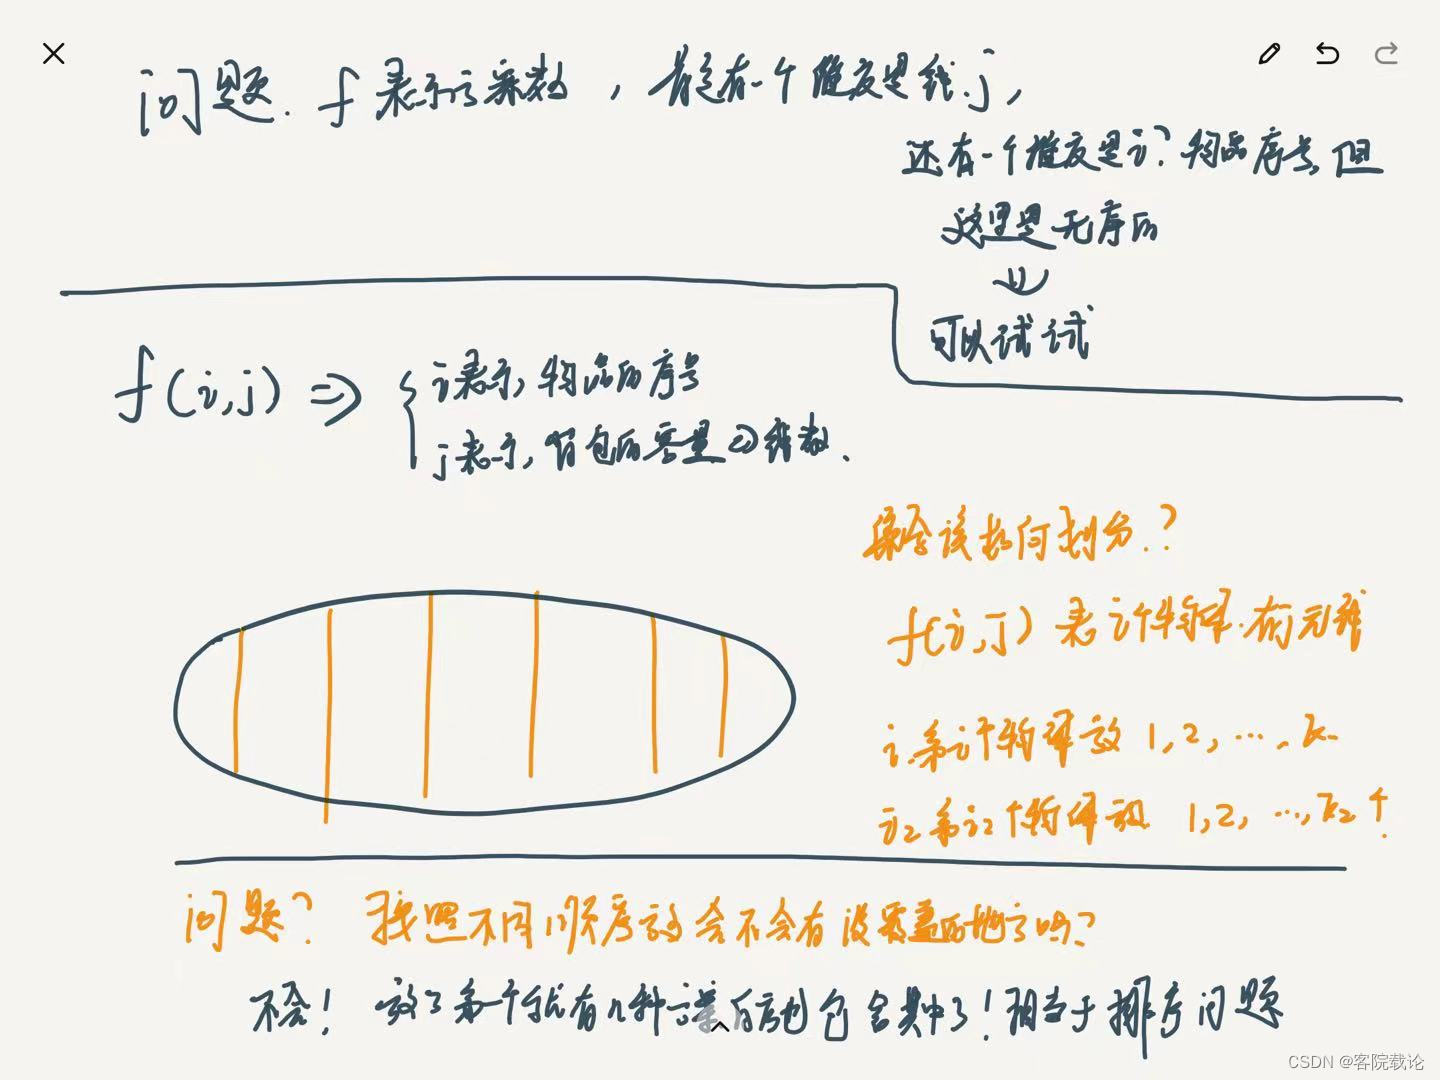 问题. f 表示方案数，肯定有一个维度是钱 j，
还有一个维度是 i? 物品序号, 但
这里是无序的
可以试试
f(i,j) ⇒ { i 表示, 物品的序号
j 表示, 背包的容量 ⇒ 钱数.
集合该如何划分.?
f(i,j) 表 i个物体.有 元钱
i. 第i个物体放 1,2,…,k.
i2 第i2个物体放 1,2,…,k2个.
问题? 按照不同顺序放会不会有没覆盖的地方吗?
不会! 放了第一个就有n种 包含其中了! 相当于排序问题
CSDN @客院载论